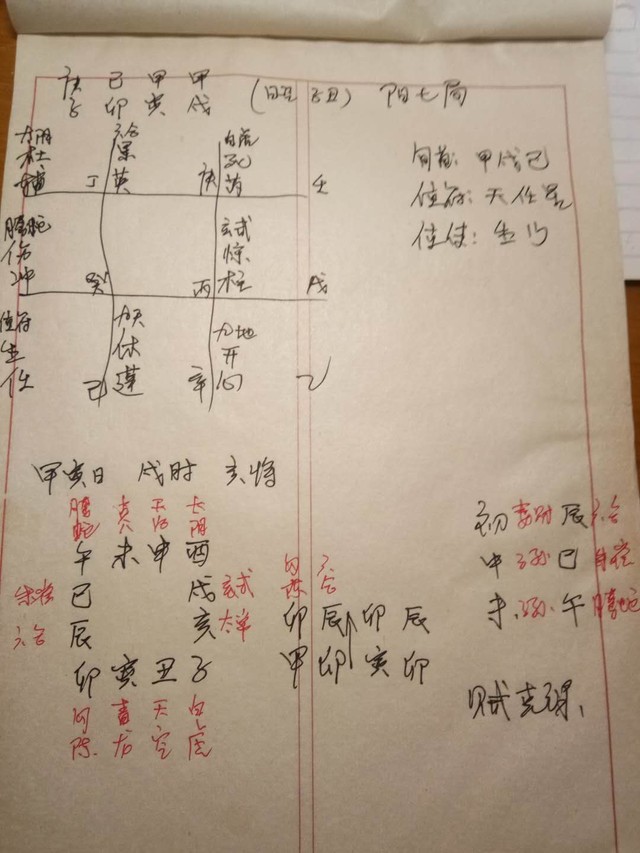 庚 己 甲 甲
子 卯 寅 戌 (日空 子丑) 阳七局
太阴 六合 白虎
杜 景 死
辅 丁 英 庚 芮 壬
旬首: 甲戌己
值符: 天任星
值使: 生门
腾蛇 玄武
伤 惊
冲 癸 丙 柱 戊
值符 九天 九地
生 休 开
任 己 蓬 辛 心 乙
甲寅日 戌时 亥将
腾蛇 贵人 天后 太阴
午 未 申 酉
朱雀 巳 戌 玄武
六合 辰 亥 太常
卯 寅 丑 子
勾陈 青龙 天空 白虎
勾陈 六合
卯 辰 卯 辰
甲 卯 寅 卯
初 妻财 辰 六合
中 子孙 巳 朱雀
末 子孙 午 腾蛇
贼克课、